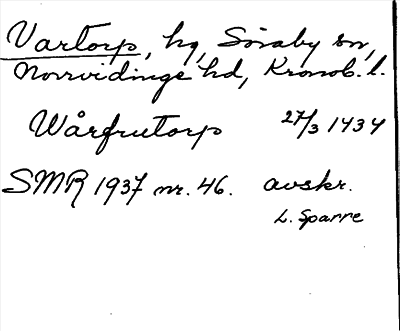 Vartorp, hg, Söraby sn,
Norrvidinge hd, Kronob. l.
Wårfrutorp 27/3 1434
SMR 1937 nr. 46. avskr.
L. Sparre